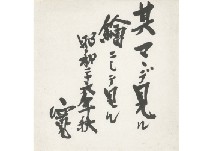 其マヽデ見ル
繪ニシテ見ル
昭和二十五年秋